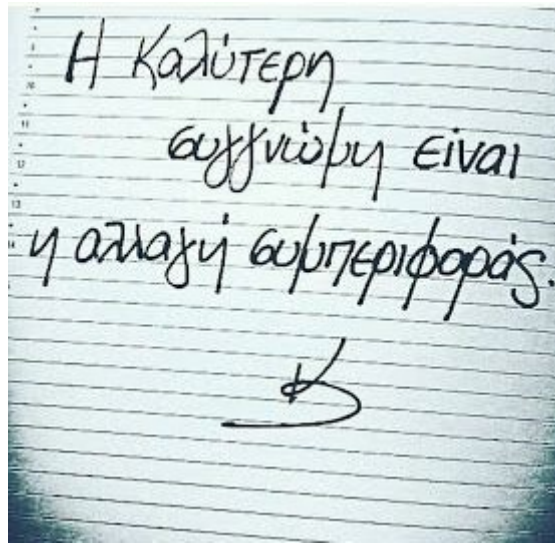 Η καλύτερη
συγγνώμη είναι
η αλλαγή συμπεριφοράς.